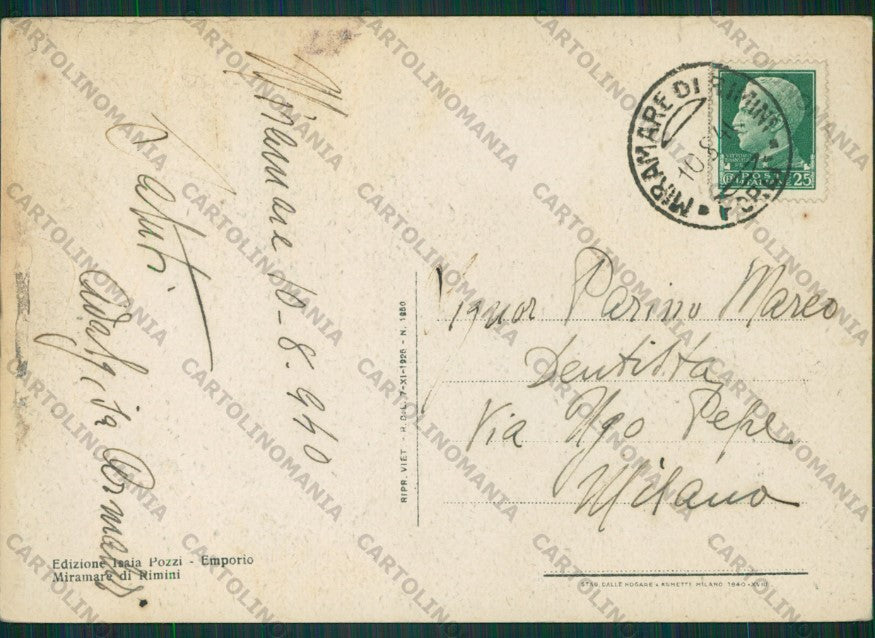 Miramare 10-8.940
Saluti
MIRAMARE DI RIMINI
10.8.4
FORLI
POSTE ITALIANE
25
Signor Parino Marco
Dentista
Via Ugo Pepe
Milano
RIPR. VIET. - R. D. L. 7-XI-1925 - N. 1950
Edizione Isaia Pozzi - Emporio
Miramare di Rimini
STAB. DALLE NOGARE & ARMETTI MILANO 1940-XVIII
CARTOLINOMANIA